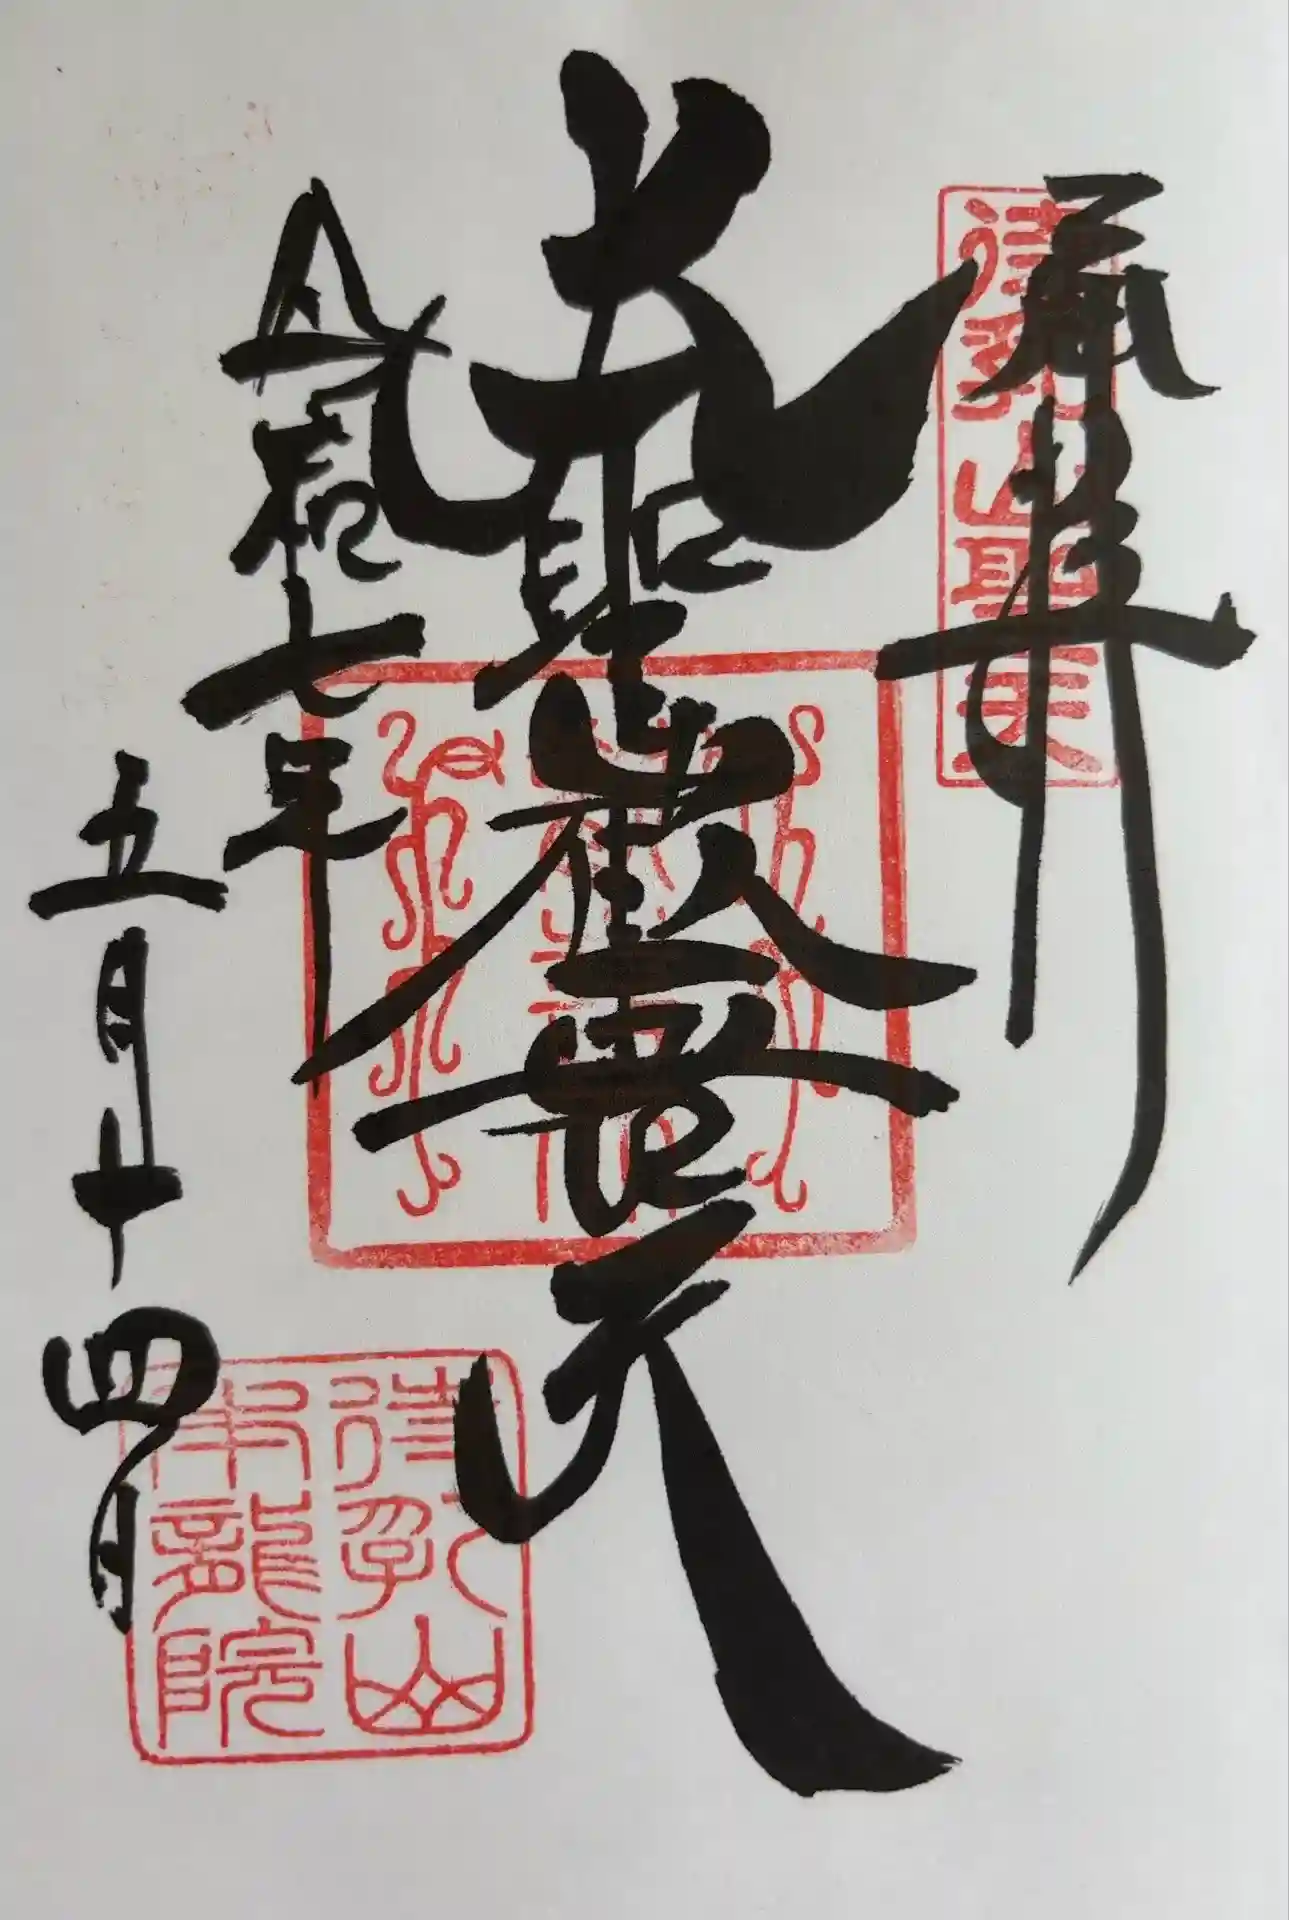 奉拝
待乳山聖天
大聖歓喜天
令和七年
五月十四日
待乳山
本龍院